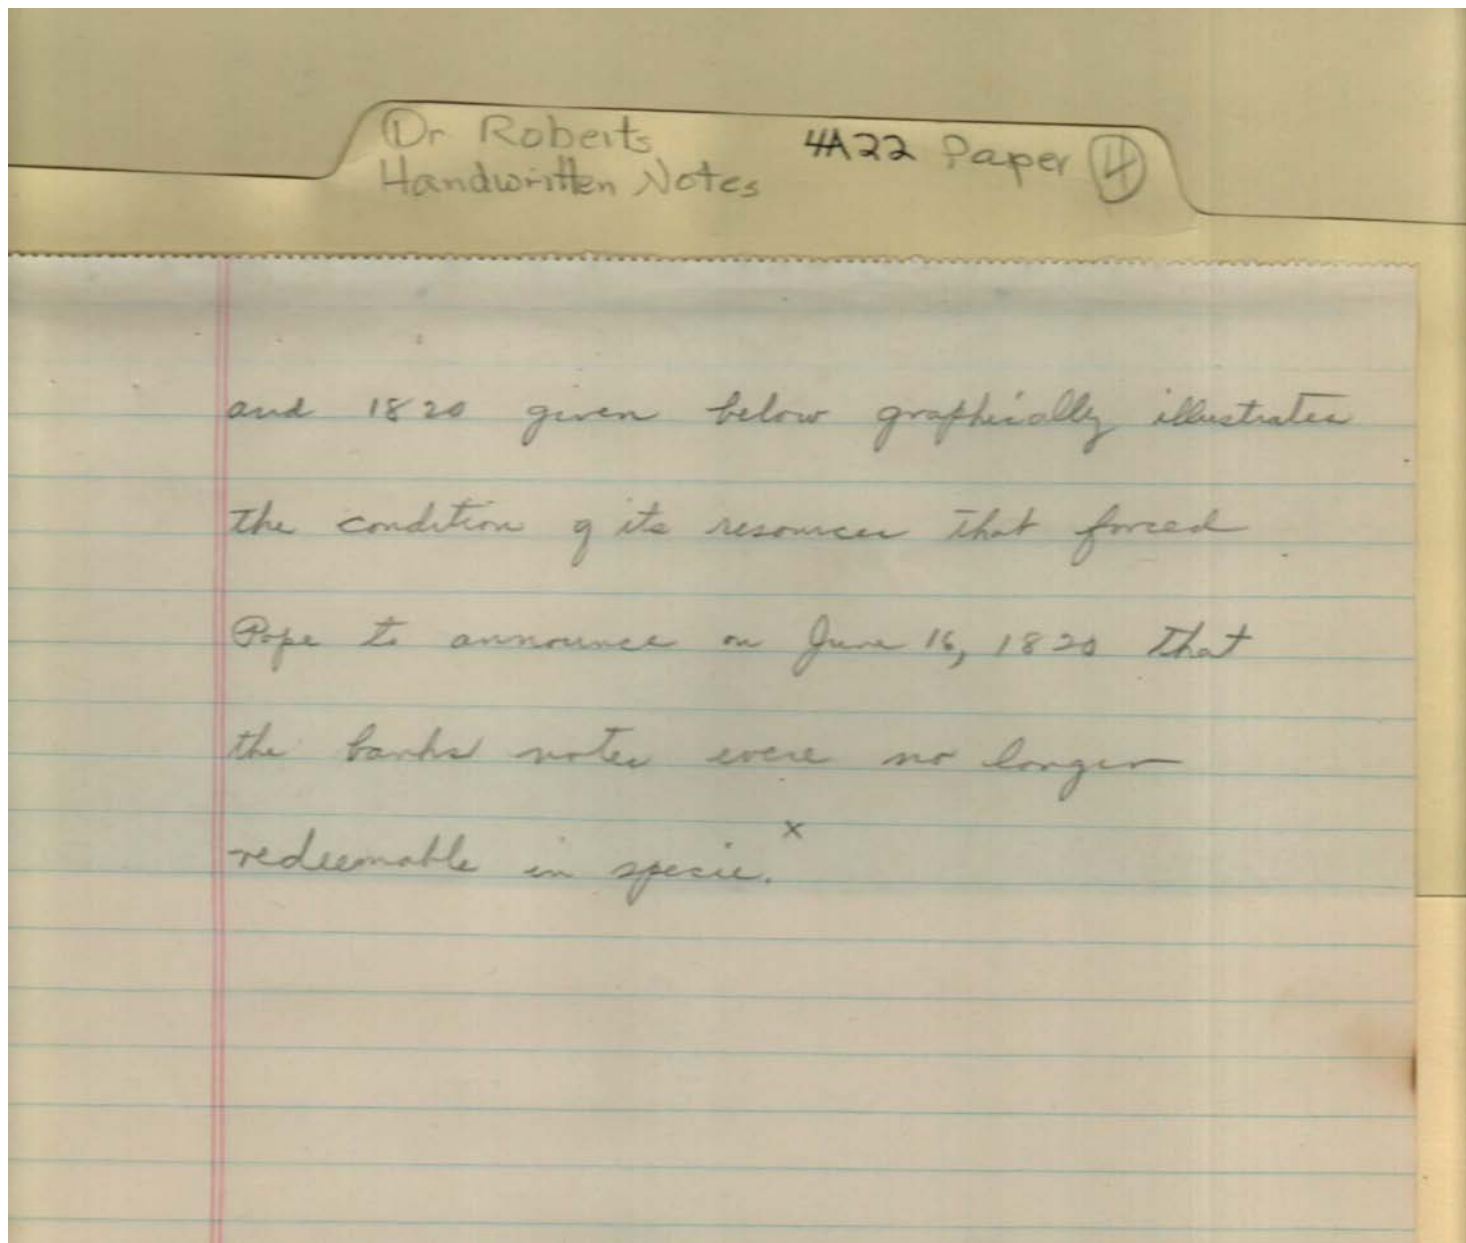 Dr Roberts 4A22 Paper 4
Handwritten Notes
and 1820 given below graphically illustrates
the condition of its resources that forced
Pope to announce on June 16, 1820 that
the banks notes were no longer
redeemable in specie.x